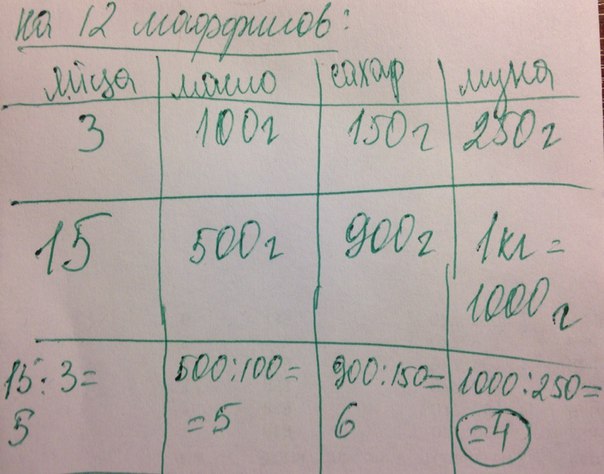 на 12 маффинов:
яйца масло сахар мука
3 100г 150г 250г
15 500г 900г 1кг =
1000г
15 : 3 = 500:100= 900:150= 1000:250=
5 =5 6 =4